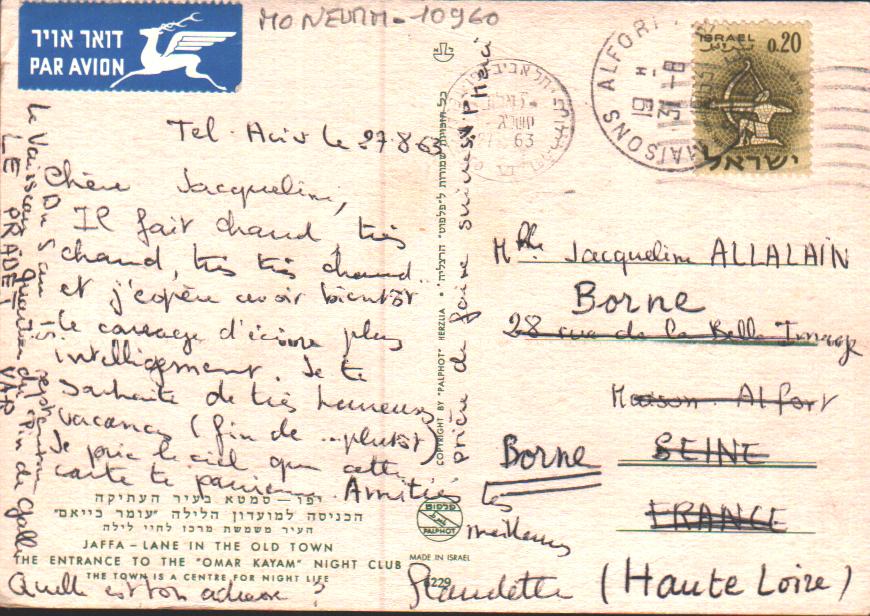 MONEURM-10960
דואר אויר
PAR AVION
Tel. Aviv le 27.8.63
Chère Jacqueline,
Il fait chaud, très
chaud, très très chaud
et j'espère avoir bientôt
le courage d'écrire plus
intelligemment. Je te
souhaite de très heureuses
vacances (fin de ... plutôt)
Je prie le ciel que cette
carte te parvienne. Amitiés
les
meilleures
Claudette
Quelle est ton adresse ?
Du 5 au 15 septembre
Le Vaisseau quartier du Pin de Galle
LE PRADET VAR
יפו - סמטא בעיר העתיקה
הכניסה למועדון הלילה "עומר כייאם"
העיר משמשת מרכז לחיי לילה
JAFFA – LANE IN THE OLD TOWN
THE ENTRANCE TO THE "OMAR KAYAM" NIGHT CLUB
THE TOWN IS A CENTRE FOR NIGHT LIFE
כל הזכויות שמורות ל"פלפוט" הרצליה
COPYRIGHT BY "PALPHOT" HERZLIA
prière de faire suivre S.V.P. merci
פלפוט
PALPHOT
MADE IN ISRAEL
6229
תל אביב
63
MAISONS ALFORT
19 H
31-8
ISRAEL
0.20
ישראל
Mlle Jacqueline ALLALAIN
Borne
28 rue de la Belle Image
Maison-Alfort
Borne
SEINE
FRANCE
(Haute Loire)